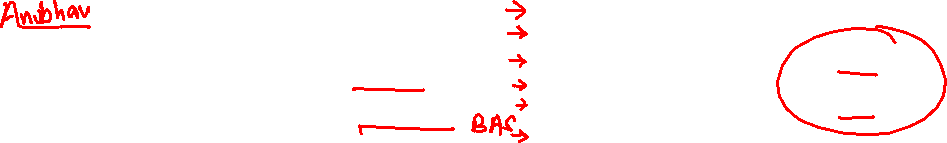 Anubhav
BAS